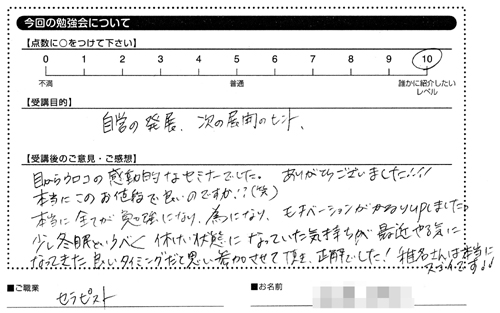 今回の勉強会について
【点数に○をつけて下さい】
0 1 2 3 4 5 6 7 8 9 10
不満 普通 誰かに紹介したいレベル
【受講目的】
自営の発展、次の展開のヒント、
【受講後のご意見・ご感想】
目からウロコの感動的なセミナーでした。ありがとうございました!!!
本当にこのお値段で良いのですか!?(笑)
本当に全てが勉強になり、為になり、モチベーションがかなりupしました。
少し冬眠というべく 休けい状態になっていた気持ちが最近やる気に
なってきた良いタイミングだと思い参加させて頂き、正解でした!椎名さんは本当に
スゴイです!!
■ご職業
セラピスト
■お名前